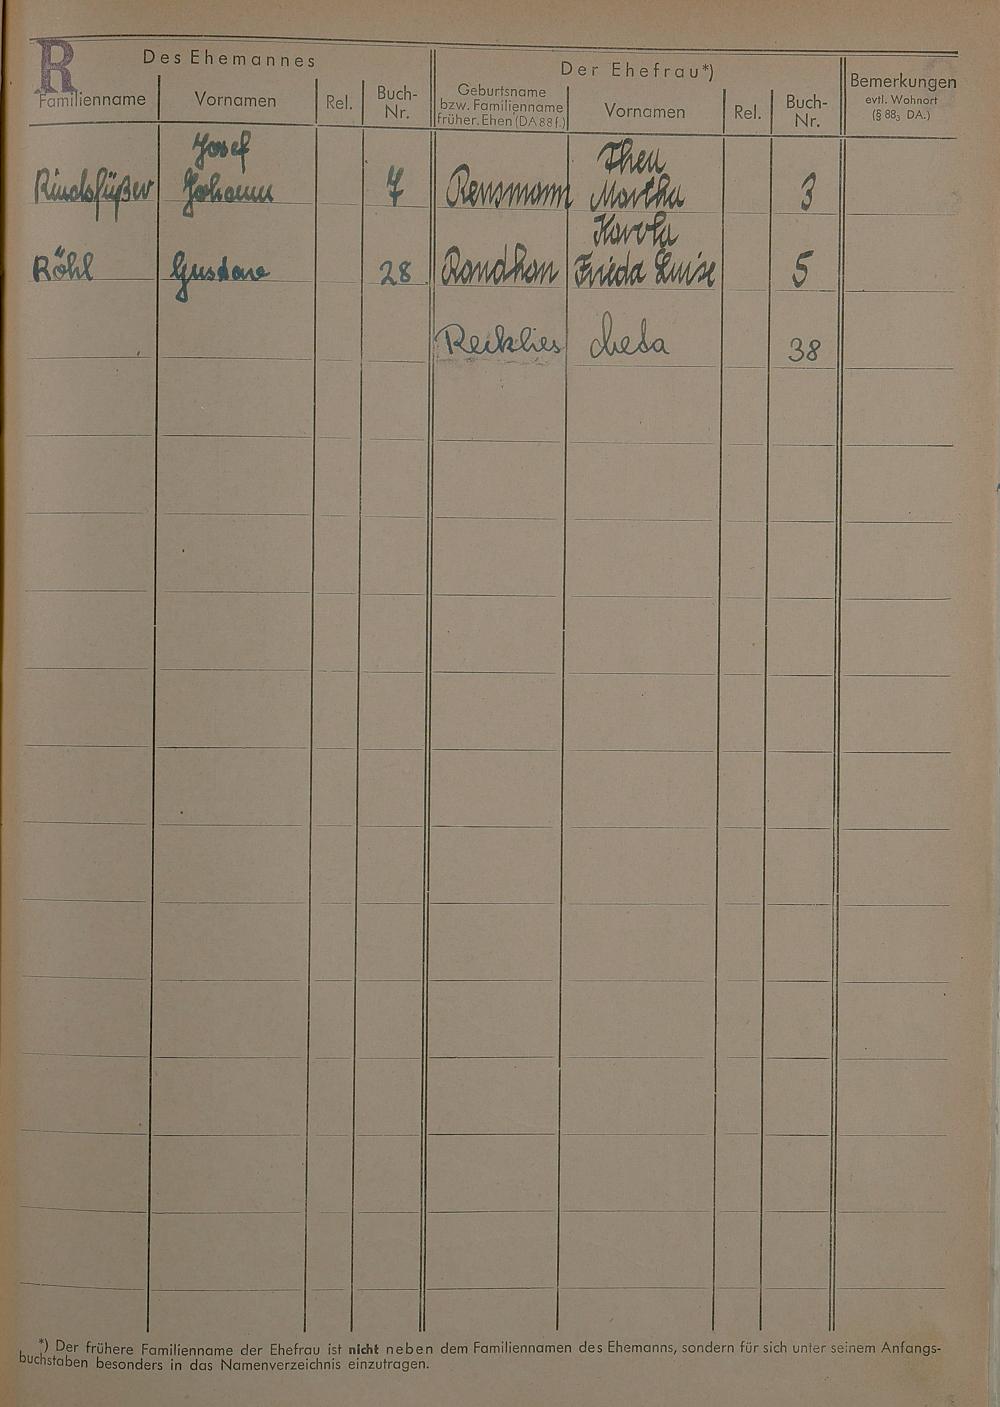 R
Des Ehemannes
Der Ehefrau*)
Bemerkungen
evtl. Wohnort
(§ 88₃ DA.)
Familienname
Vornamen
Rel.
Buch-
Nr.
Geburtsname
bzw. Familienname
früher. Ehen (DA 88 f.)
Vornamen
Rel.
Buch-
Nr.
Josef
Thea
Rindsfüßer Johann 7 Rensmann Martha 3
Karola
Röhl Gustav 28 Frieda Luise 5
Recklies 38
*) Der frühere Familienname der Ehefrau ist nicht neben dem Familiennamen des Ehemanns, sondern für sich unter seinem Anfangs-
buchstaben besonders in das Namenverzeichnis einzutragen.